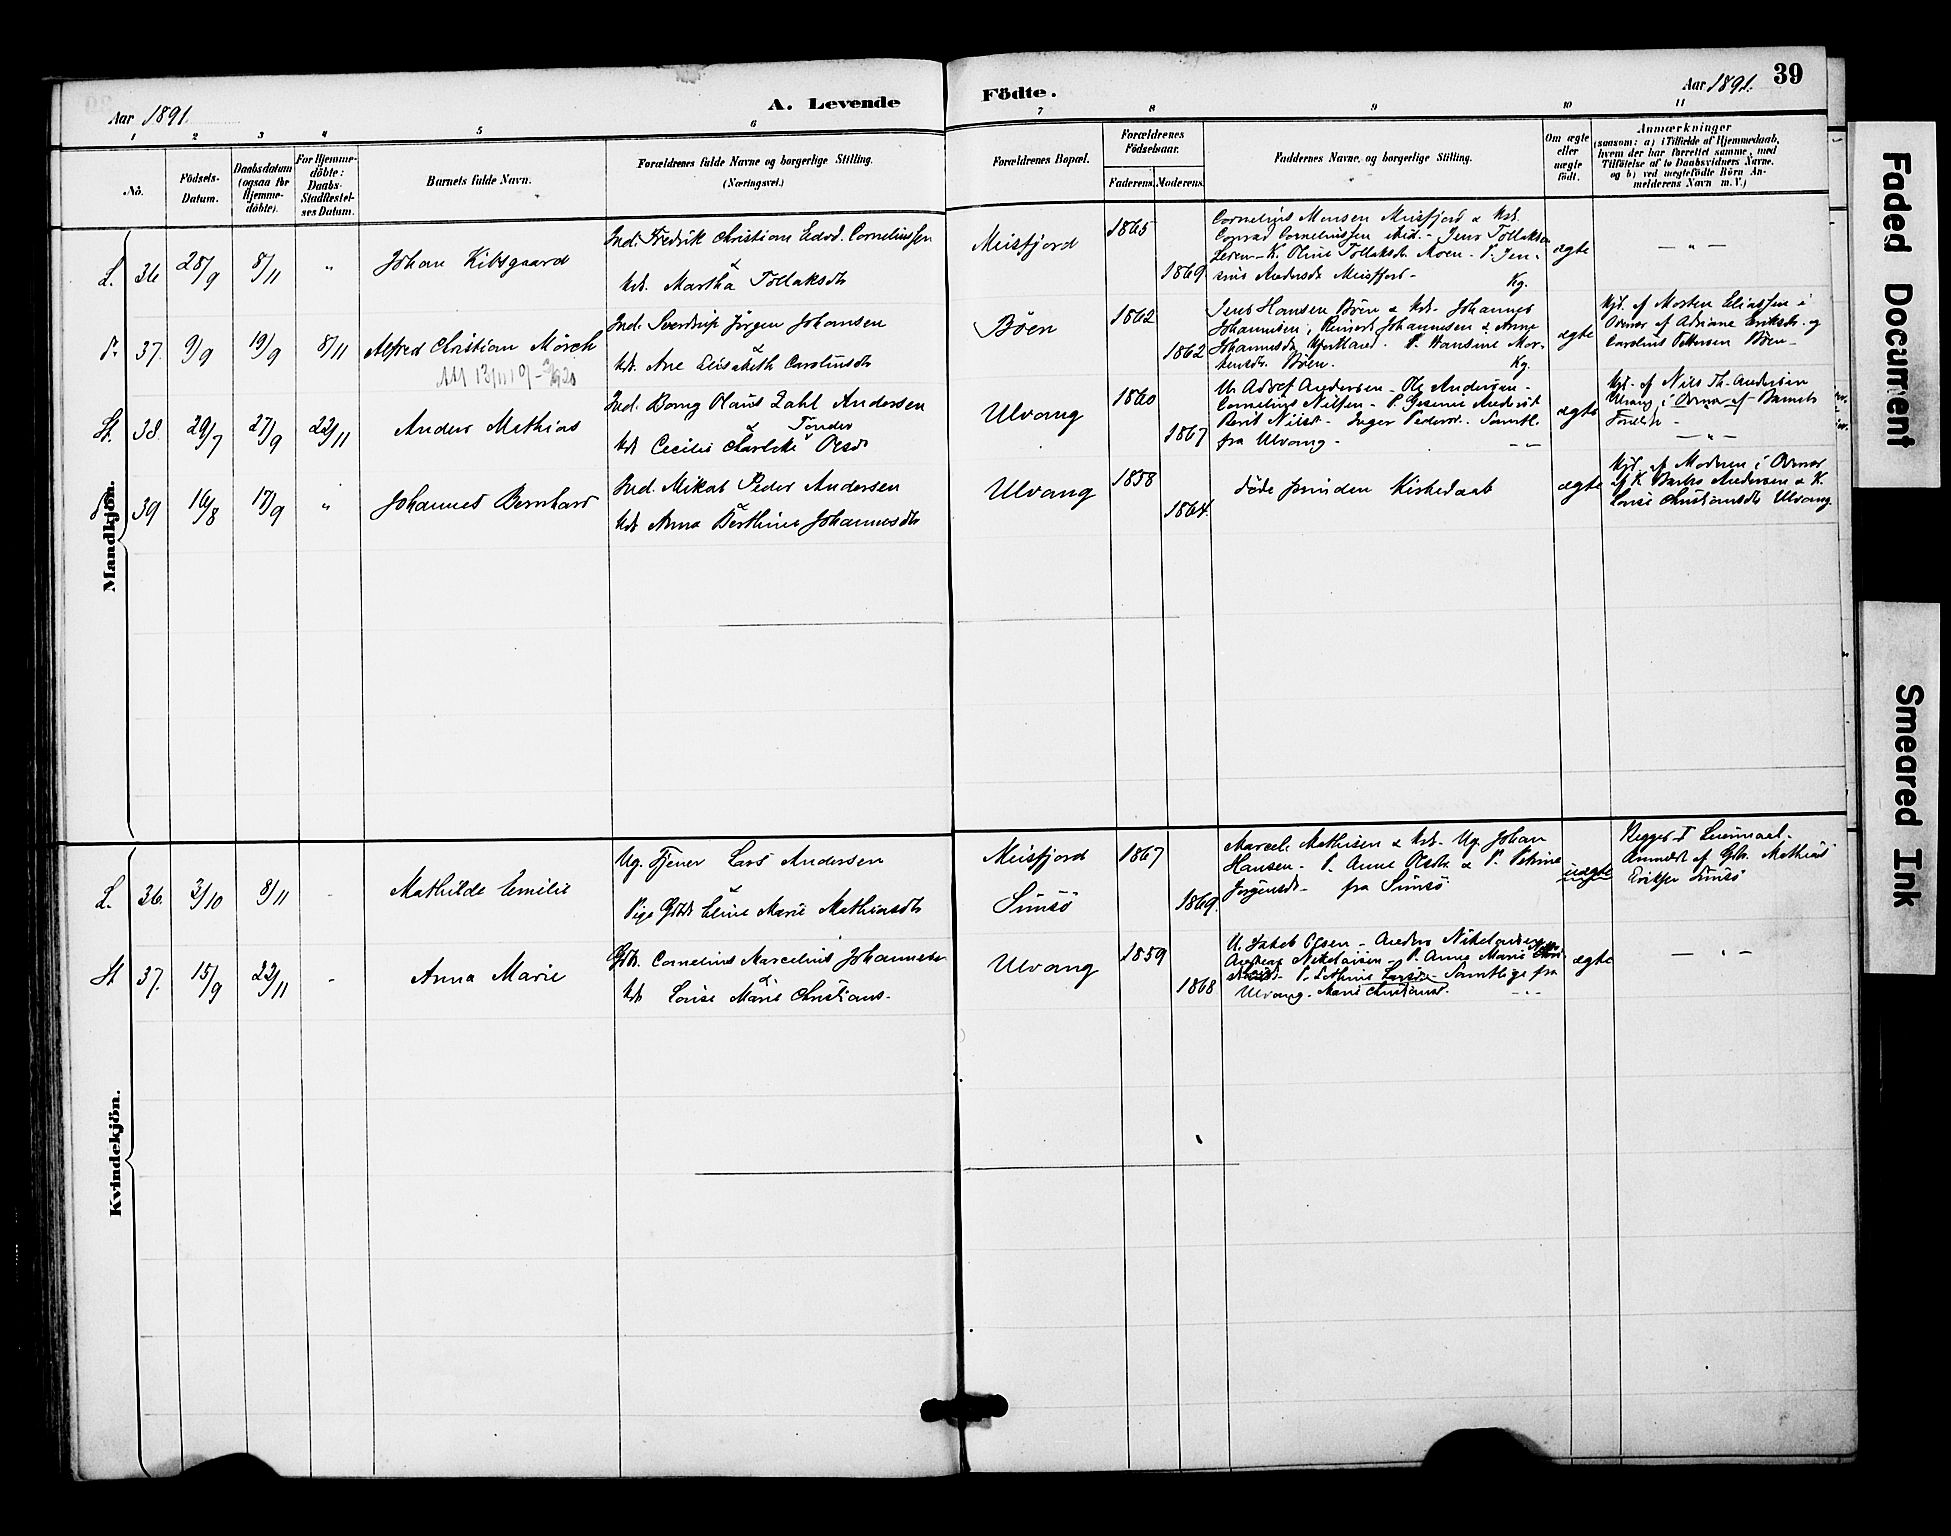 Aar 1891.
A. Levende
Födte.
Aar 1891.
39
1 2 3 4 5 6 7 8 9 10 11
No.
Födsels-
Datum.
Daabsdatum
(ogsaa for
Hjemme-
döbte).
For Hjemme-
döbte:
Daabs-
Stadfæstel-
ses Datum.
Barnets fulde Navn.
Forældrenes fulde Navne og borgerlige Stilling.
(Næringsvei.)
Forældrenes Bopæl.
Forældrenes
Födselsaar.
Faderens. Moderens.
Faddernes Navne, og borgerlige Stilling.
Om ægte
eller
uægte
födt.
Anmærkninger
(saasom: a) i Tilfælde af Hjemmedaab,
hvem der har forrettet samme, med
Tilföielse af to Daabsvidners Navne,
og b) ved uægtefödte Börn An-
melderens Navn m. V.)
Mandkjön.
L. 36 28/9 8/11 "
Johan Kibsgaard
Ind. Fredrik Christian Edvd. Corneliussen
&
Kst. Martha Tollaksdtr
Meisfjord
1865
1869
Cornelius Monsen Meisfjord & Kst.
Conrad Corneliussen ibid. - Jens Tollaksen
Leren - K. Oline Tollaksdtr Moen - P. Jen-
sine Andersdtr Meisfjord -
Kg.
ægte
- " -
37. 9/9 19/9 8/11
Alfred Christian Mörch
Ind. Sverdrup Jörgen Johansen
&
Kst. Ane Elisabeth Carolinsdtr
Böen
1862
1862
Jens Hansen Böen & Kst. Johannes
Johannesen, Reinert Johannesen & Anne
Johannesdtr. P. Hansine Mor-
tensdtr. Böen.
Kg.
ægte
Hjd. af Morten Eliassen i
Ovmor af Adriane Eriksdtr. og
Carolius Pettersen Böen -
St. 38. 29/7 27/9 22/11
Anders Mathias
Ind. Bong Olaus Zahl Andersen
& Tönder
Kst. Cecilie Charlotte Olsdtr
Ulvang
1860
1867
U. Adolf Andersen - Ole Andersen -
Cornelius Nilsen - P. Gesine Andersdt
Berit Nilsdt - Inger Pedersd. Samtl.
fra Ulvang -
ægte
Hjd. af Nils Th. Andersen
Ulvang i Ovmor af Barnets
Foreldr -
- " -
39 16/8 17/9 "
Johannes Bernhard
Ind. Mikal Peder Andersen
&
Kst. Anna Berthine Johannesdtr
Ulvang
1858
1864.
döde forinden Kirkedaab
ægte
Hjd. af Moderen i Ovmor
af K. Andersen & K.
Lovise Christiansdtr Ulvang.
Kvindekjön.
L. 36. 3/10 8/11 -
Mathilde Emilie
Ug. Tjener Lars Andersen
&
Pige Eline Marie Mathiasdtr
Meisfjord
Sunsö
1867
1869.
Marcel. Mathisen & Kst. Ug. Johan
Hansen - P. Anne Olsdtr. & P. Petrine
Jörgensdt - fra Sunsö
uægte
Begges I Leiermaal.
Anmeldt af Gbr. Mathias
Eriksen Sunsö
St 37. 15/9 22/11 -
Anna Marie
Gbr. Cornelius Marcelius Johannesen
&
Kst Lovise Marie Christians.
Ulvang
1859
1868
U. Jakob Olsen - Anders Nikolaisen
Andreas Nikolaisen - P. Anne Marie
P. Lethine Larsdtr - Samtlige fra
Ulvang. Marie Christiansd.
ægte
- " -
Faded Document
Smeared Ink